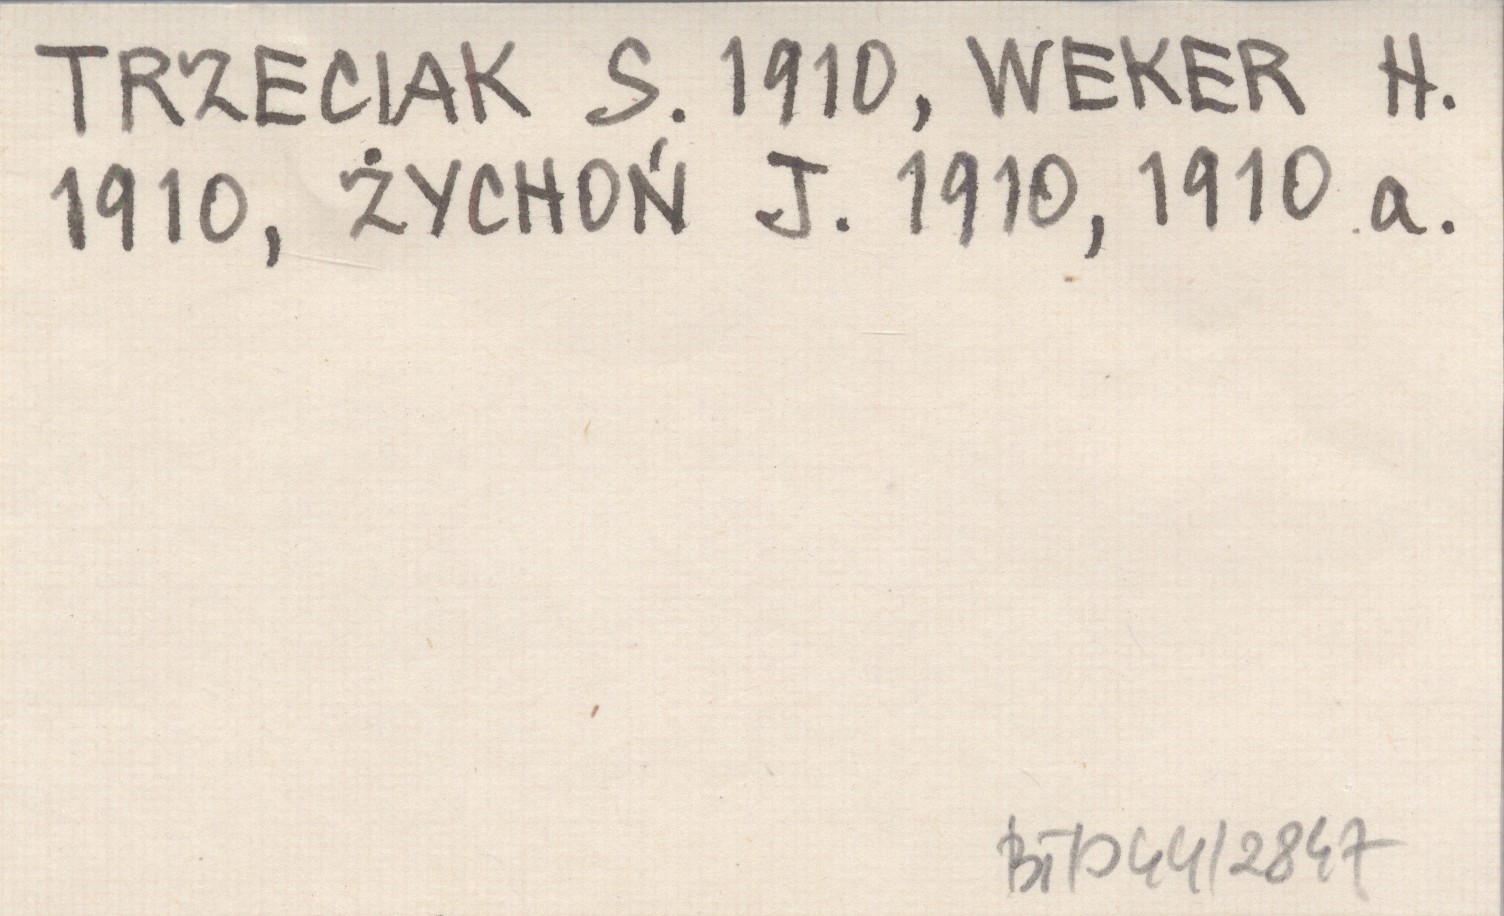 TRZECIAK S. 1910, WEKER H.
1910, ŻYCHOŃ J. 1910, 1910 a.
BT/D44/2847